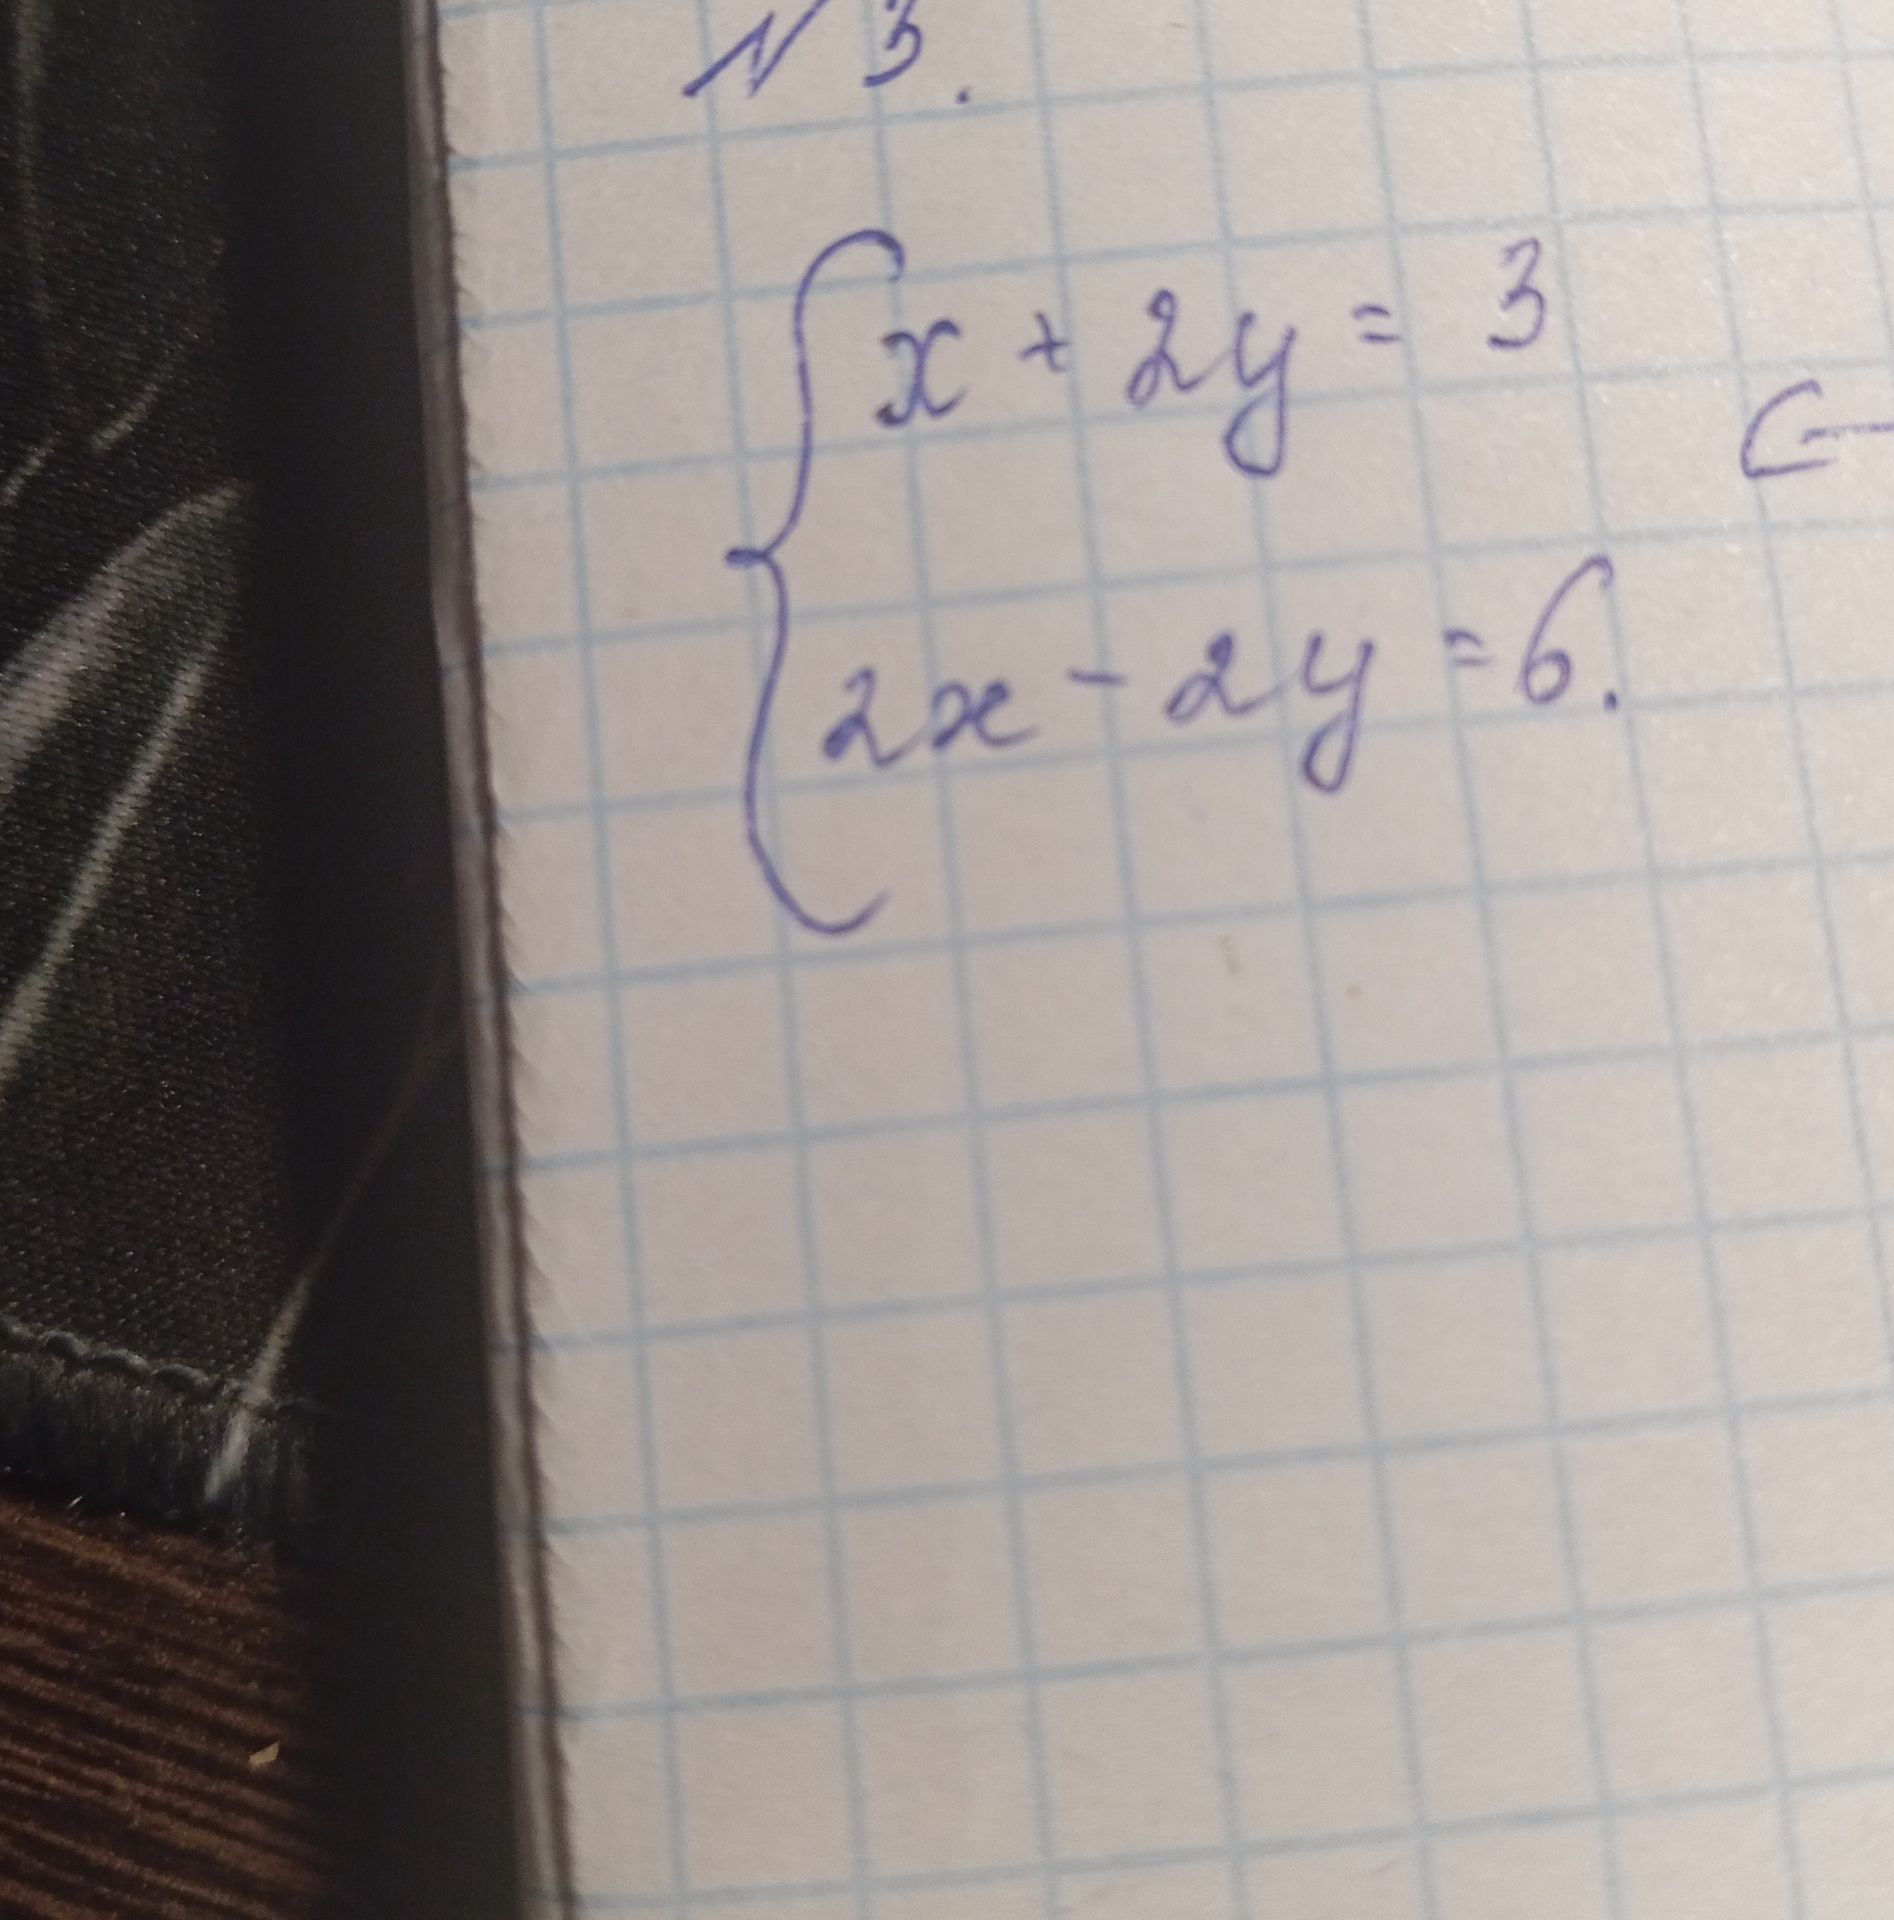 №3.
x + 2y = 3
2x - 2y = 6.